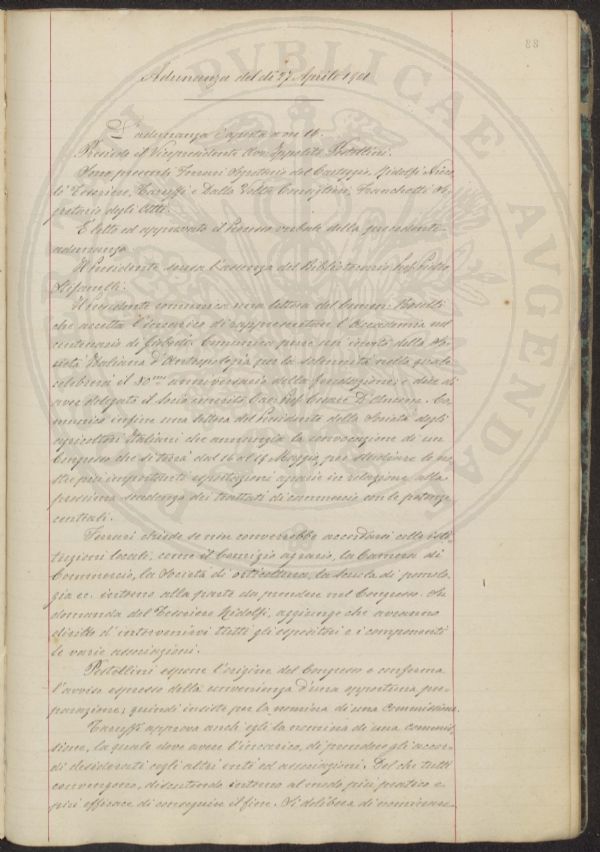 88
Adunanza del dì 27 Aprile 1901
L'adunanza è aperta a ore 14.
Presiede il Vicepresidente Cav. Ippolito Pestellini.
Sono presenti: Ferrari Segretario del Carteggio, Ridolfi Nico-
lò Tesoriere, Taruffi e Dalla Volta Consiglieri, Franchetti Se-
gretario degli Atti.
È letto ed approvato il Processo verbale della precedente
adunanza.
Il Presidente scusa l'assenza del Bibliotecario
Stefanelli.
Il Presidente comunica una lettera del Comm.
che accetta l'incarico di rappresentare l'Accademia nel
centenario di Gioberti. Comunica pure un invito della So-
cietà Italiana d'Antropologia per la solennità nella quale
celebrerà il 30mo anniversario della fondazione, e dice di
aver delegato il Socio emerito Cav. Prof. Cesare D'Ancona. Co-
munica infine una lettera del Presidente della Società degli
agricoltori Italiani che annunzia la convocazione di un
Congresso che si terrà dal 16 al 19 Maggio, per studiare le no-
stre più importanti esportazioni agrarie in relazione alla
prossima scadenza dei trattati di commercio con le potenze
centrali.
Ferrari chiede se non converrebbe accordarsi colle isti-
tuzioni locali, come il Comizio agrario, la Camera di
Commercio, la Società di orticultura, la scuola di pomolo-
gia ec. intorno alla parte da prendere nel Congresso. Su
domanda del Tesoriere Ridolfi, aggiunge che avranno
diritto d'intervenirvi tutti gli espositori e i componenti
le varie associazioni.
Pestellini espone l'origine del Congresso e conferma
l'avviso espresso della convenienza d'una opportuna pre-
parazione; quindi insiste per la nomina di una Commissione.
Taruffi approva anch'egli la nomina di una commis-
sione, la quale deve avere l'incarico, di prendere gli accor-
di desiderati cogli altri enti ed associazioni. Del che tutti
convengono, discutendo intorno al modo più pratico e
più efficace di conseguire il fine. Si delibera di nominare